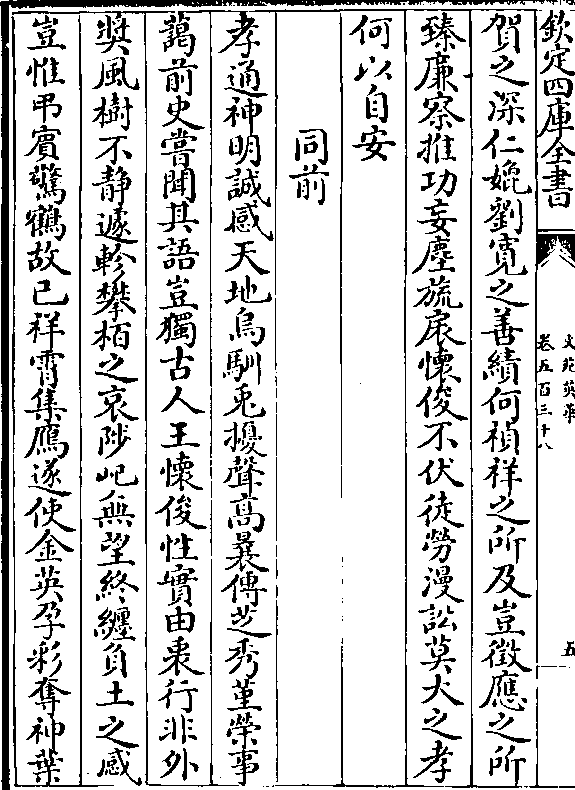 欽定四庫全書
文苑英華
卷五百三十八
五
賀之深仁媲劉寛之善績何禎祥之所及豈徴應之所
臻廉察推功妄塵旒扆懷俊不伏徒勞漫訟莫大之孝
何以自安
同前
孝通神明誠感天地烏馴兎擾聲髙曩傳芝秀堇榮事
藹前史嘗聞其語豈獨古人王懷俊性實由衷行非外
奬風樹不静遽軫攀栢之哀陟屺無望終纒負土之感
豈惟弔賓驚鶴故已祥霄集鴈遂使金英孕彩奪神葉